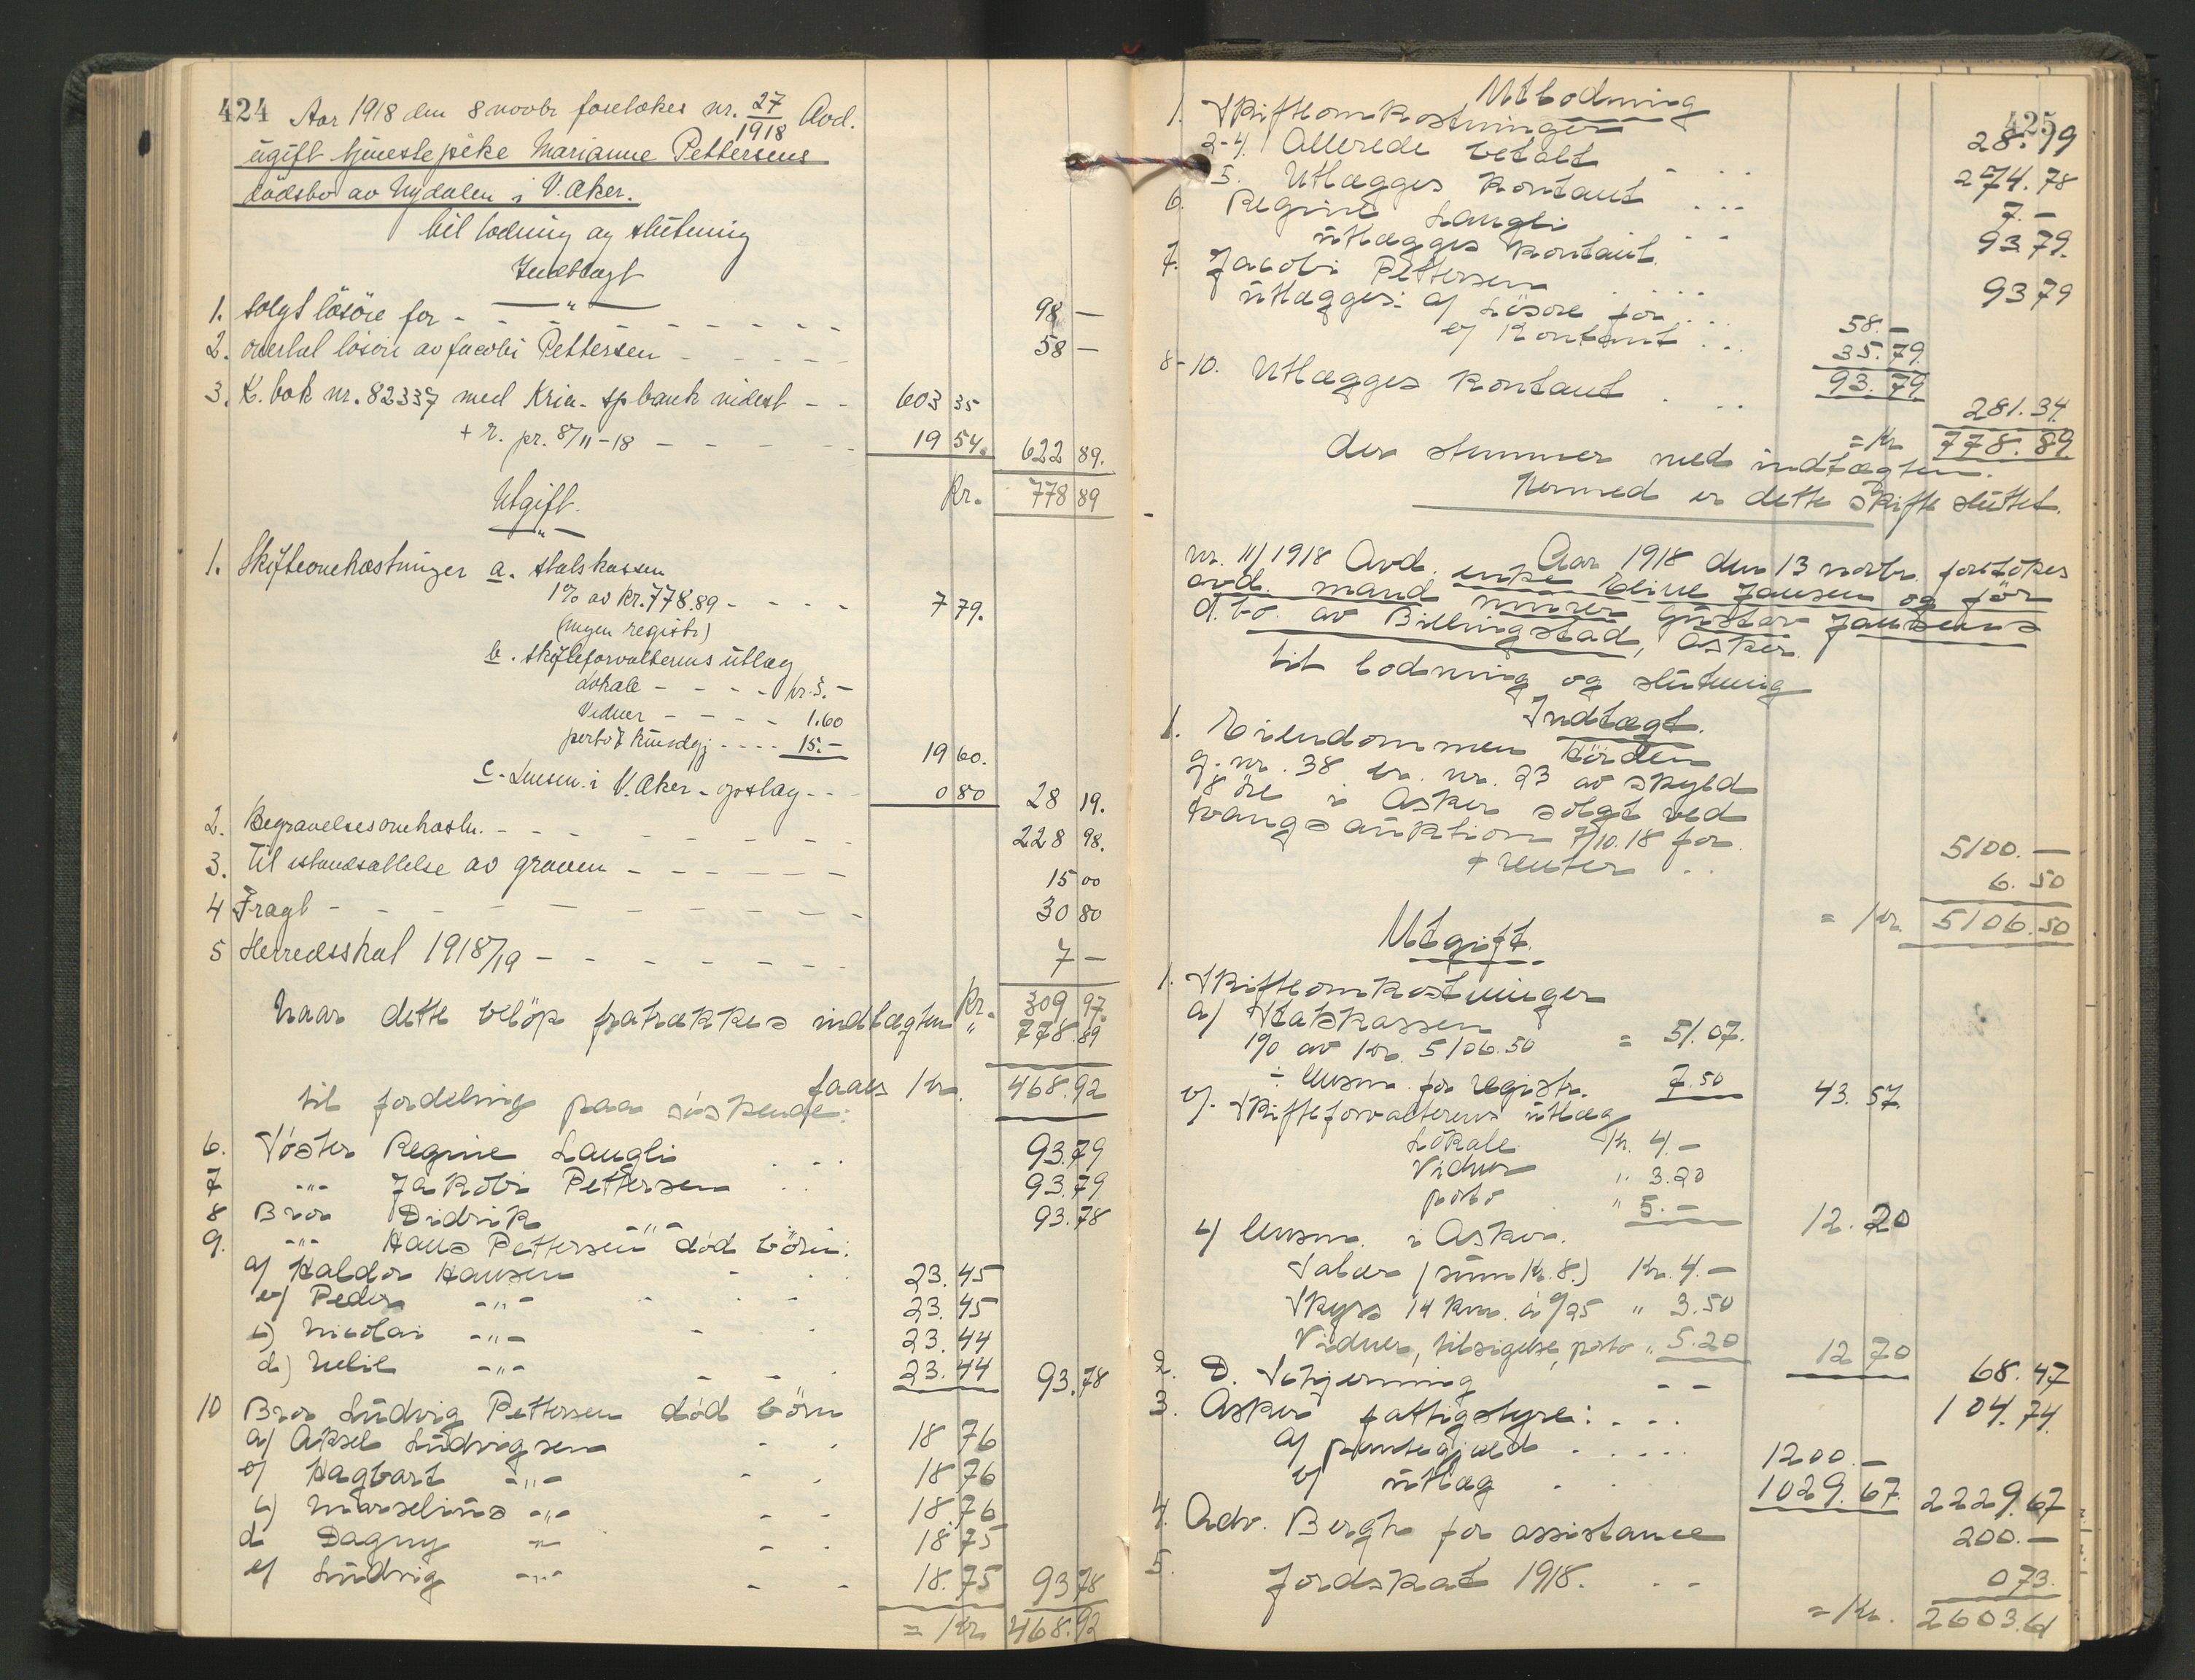 424 Aar 1918 den 8 novbr foretokes nr. 27/1918 Avd.
ugift tjenestepike Marianne Pettersens
dødsbo av Nydalen i V. Aker.
til lodning og slutning
Indtægt
1. Solgt løsøre for - - - 98 —
2. overtat løsøre av Jacobi Pettersen - - - 58 —
3. K. bok nr. 82337 med Kria. spbank indest - - 603 35
+ r. pr. 8/11-18 - - - 19 54. 622 89.
Kr. 778 89
Utgift.
1. Skifteomkostninger a. statskassen
1% av kr. 778.89 - - - 7 79.
(ingen registr)
b. skifteforvalterens utlæg
lokale - - - kr. 3.—
Vidner - - - 1.60
porto & kundgj - - - 15.— 19 60.
c. Lensm. i V. Aker - opslag - - 0 80 28 19.
2. Begravelsesomkostn. - - - 228 98.
3. Til istandsættelse av graven - - - 15 00
4 Fragt - - - 30 80
5 Herredsskat 1918/19 - - - 7 —
Kr. 309 97.
Naar dette beløp fratrækkes indtægten " 778.89
faaes Kr. 468.92
til fordeling paa søskende:
6. Søster Regine Langli . . . 93.79
7 -"- Jakobi Pettersen . . 93.79
8 Bror Didrik -"- 93.78
9. -"- Hans Pettersen død børn:
a) Haldor Hansen - . . 23.45
b) Peder -"- - - - 23.45
c) Nicolai -"- - . 23.44
d) Nelie -"- - - . 23.44 93.78
10 Bror Ludvig Pettersen død børn
a) Aksel Ludvigsen - . 18 76
b) Hagbart -"- - . 18 76
c) Marselius -"- - - 18.76
d Dagny -"- - . 18.75
e) Ludvig -"- - - 18.75 93 78
= Kr. 468.92
425
Utlodning
1. Skifteomkostninger 28.19
2-4. Allerede betalt - . . 274.78
5. Utlægges kontant . . . 7.—
6. Regine Langli - - 93.79.
utlægges kontant.
7. Jacobi Pettersen . . . . 93 79
utlægges: a) Løsøre for . . . 58.—
b) Kontant . . . 35.79.
93.79
8-10. Utlægges kontant . . . 281.34.
= Kr. 778.89
der stemmer med indtægten.
Hermed er dette skifte sluttet.
Aar 1918 den 13 novbr. foretokes
nr. 11/1918 Avd. enke Eline Jansen og før
avd. mand murer Gustav Jansens
d.bo. av Billingstad, Asker.
til lodning og slutning
Indtægt.
1. Eiendommen Hørden
g. nr. 38 br. nr. 23 av skyld
18 øre i Asker solgt ved
tvangsauktion 7/10.18 for 5100.—
+ renter . . 6.50
= Kr. 5106.50
Utgift.
1. Skifteomkostninger
a) Statskassen
1% av Kr. 5106.50 = 51.07.
÷ lensm. for registr. 7.50 43.57.
b). Skifteforvalterens utlæg
Lokale Kr. 4.—
Vidner " 3.20
porto " 5.— 12.20
c) Lensm. i Asker.
Salær (sum Kr. 8.) Kr. 4.—
Skyss 14 km. à 0/25 " 3.50
Vidner, tilsigelse, porto " 5.20 12 70 68.47
2. D. Schjerning - - 104.74.
3. Asker fattigstyre: . . .
a) pantegjæld . . . . 1200.—
b) utlæg . . 1029.67. 2229.67
4. Adv. Bergh for assistance 200.—
5. Jordskat 1918. . - 0 73.
= Kr. 2603.61